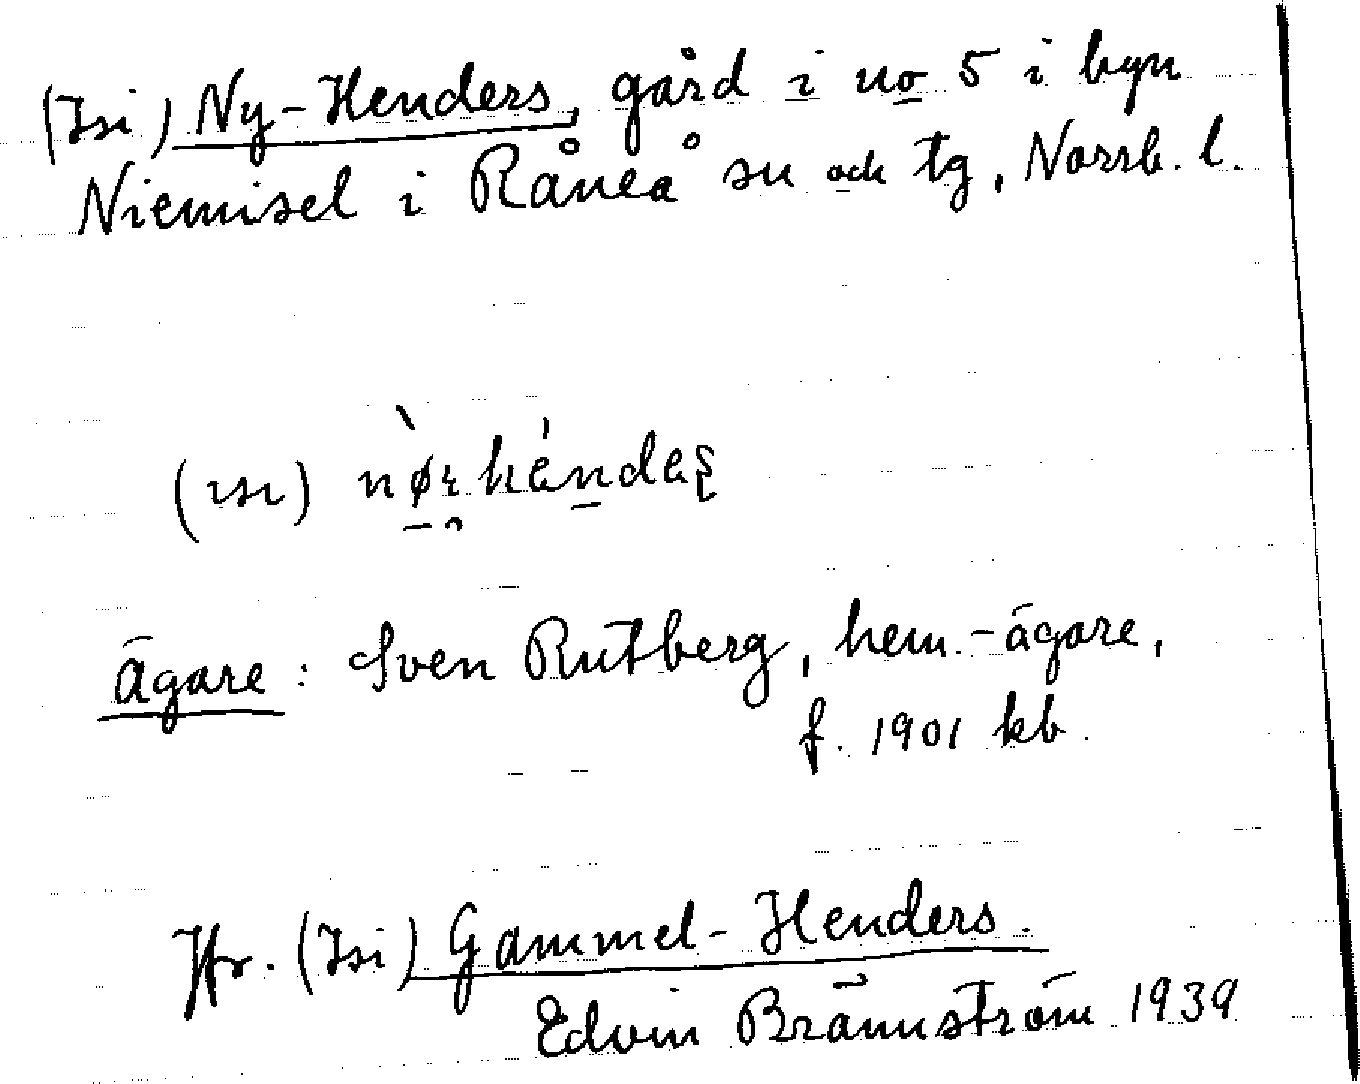 (Isi) Ny-Henders, gård i no 5 i byn
Niemisel i Råneå sn och tg, Norrb. l.
(ısı) nø̀ɪhéndaʂ
ägare: Sven Rutberg, hem.-ägare,
f. 1901 kb.
Jfr. (Isi) Gammel-Henders.
Edvin Brännström 1939